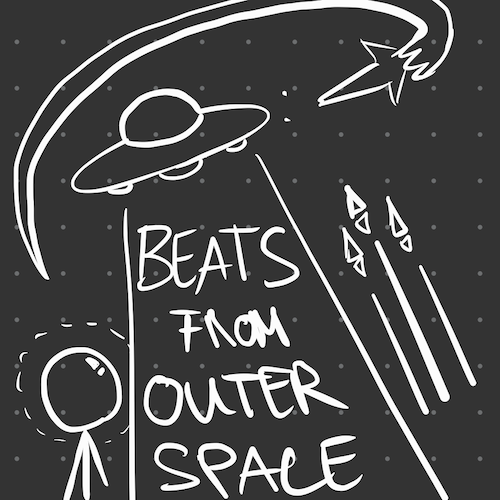 BEATS
FROM
OUTER
SPACE